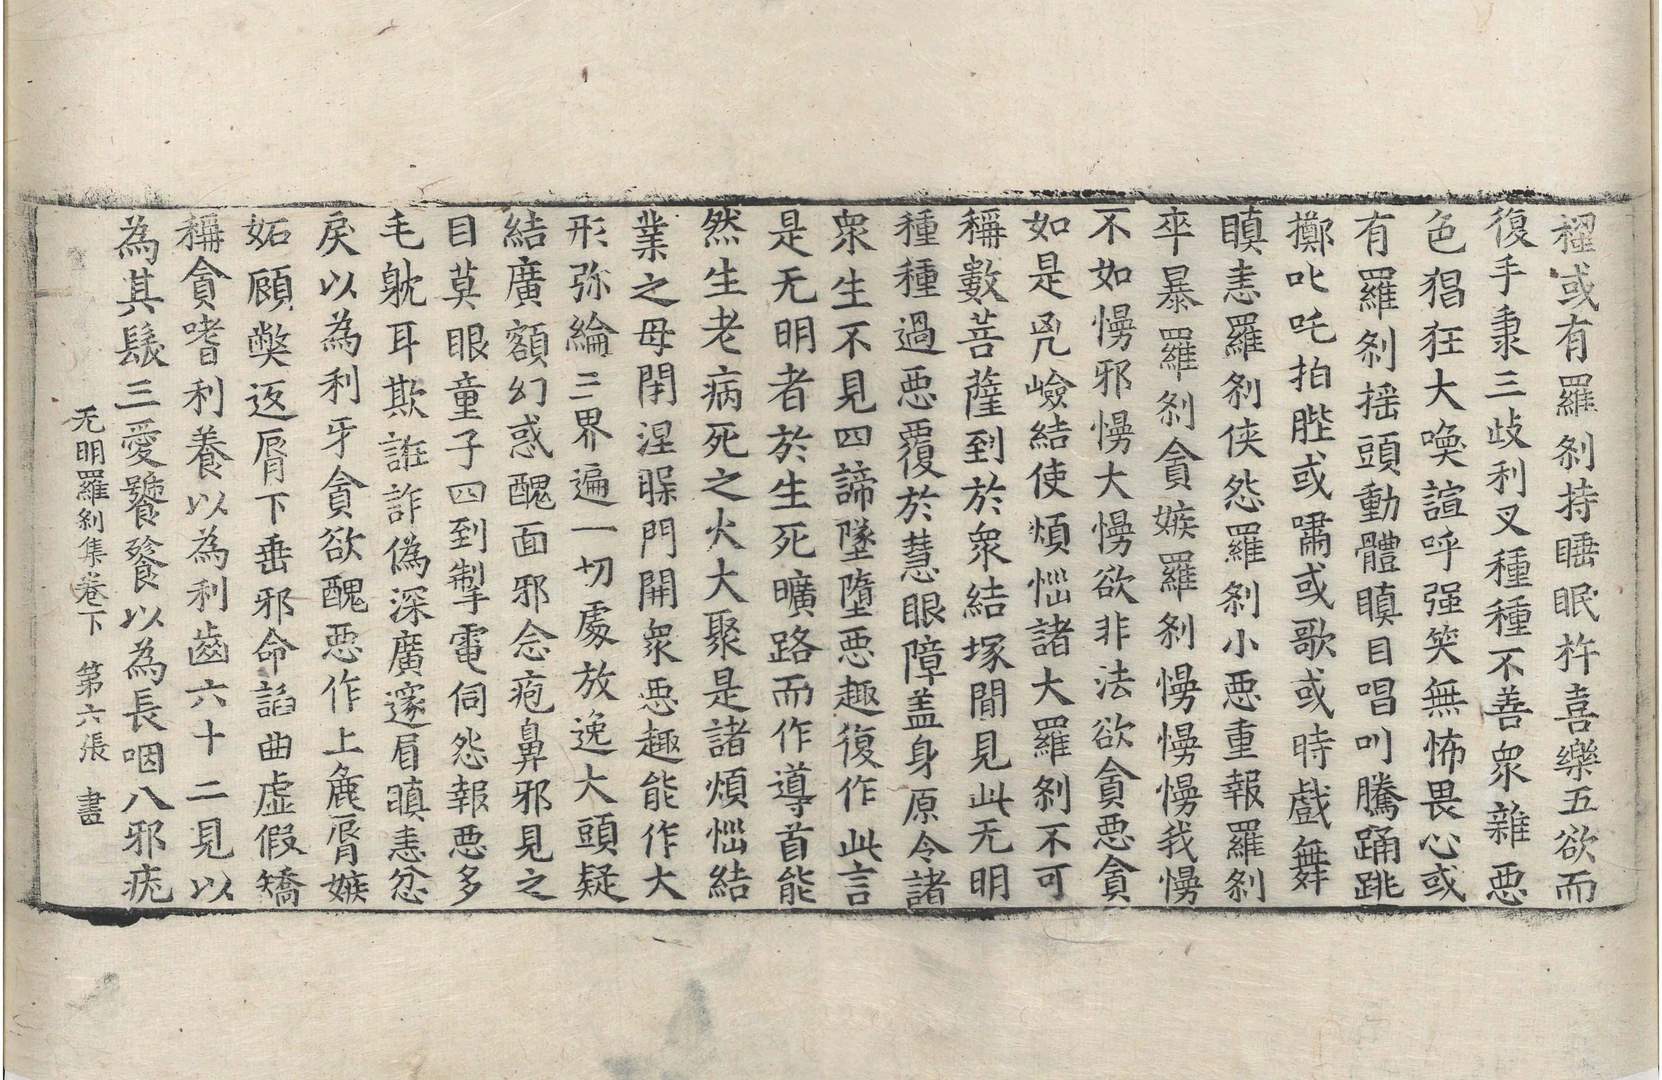 櫂或有羅刹持睡眠杵喜樂五欲而
復手秉三歧利叉種種不善衆雜惡
色猖狂大喚諠呼强笑無怖畏心或
有羅刹揺頭動體瞋目唱叫騰踊跳
擲叱吒拍髀或嘯或歌或時戲舞
瞋恚羅刹俠怨羅刹小惡重報羅刹
卒暴羅刹貪嫉羅刹慢慢慢我慢
不如慢邪慢大慢欲非法欲貪惡貪
如是兇嶮結使煩惱諸大羅刹不可
稱數菩薩到於衆結塚間見此无明
種種過惡覆於慧眼障盖身原令諸
衆生不見四諦墜墮惡趣復作此言
是无明者於生死曠路而作導首能
然生老病死之火大聚是諸煩惱結
業之母閇涅槃門開衆惡趣能作大
形弥綸三界遍一切處放逸大頭疑
結廣額幻惑醜面邪念疱鼻邪見之
目莫眼童子四到掣電伺怨報惡多
毛躭耳欺誑詐偽深廣邃眉瞋恚忿
戾以為利牙貪欲醜惡作上麁脣嫉
妬頋獘返脣下垂邪命諂曲虚假矯
稱貪嗜利養以為利齒六十二見以
為其髮三愛饕餮以為長咽八邪疣
无明羅刹集卷下　第六張　書